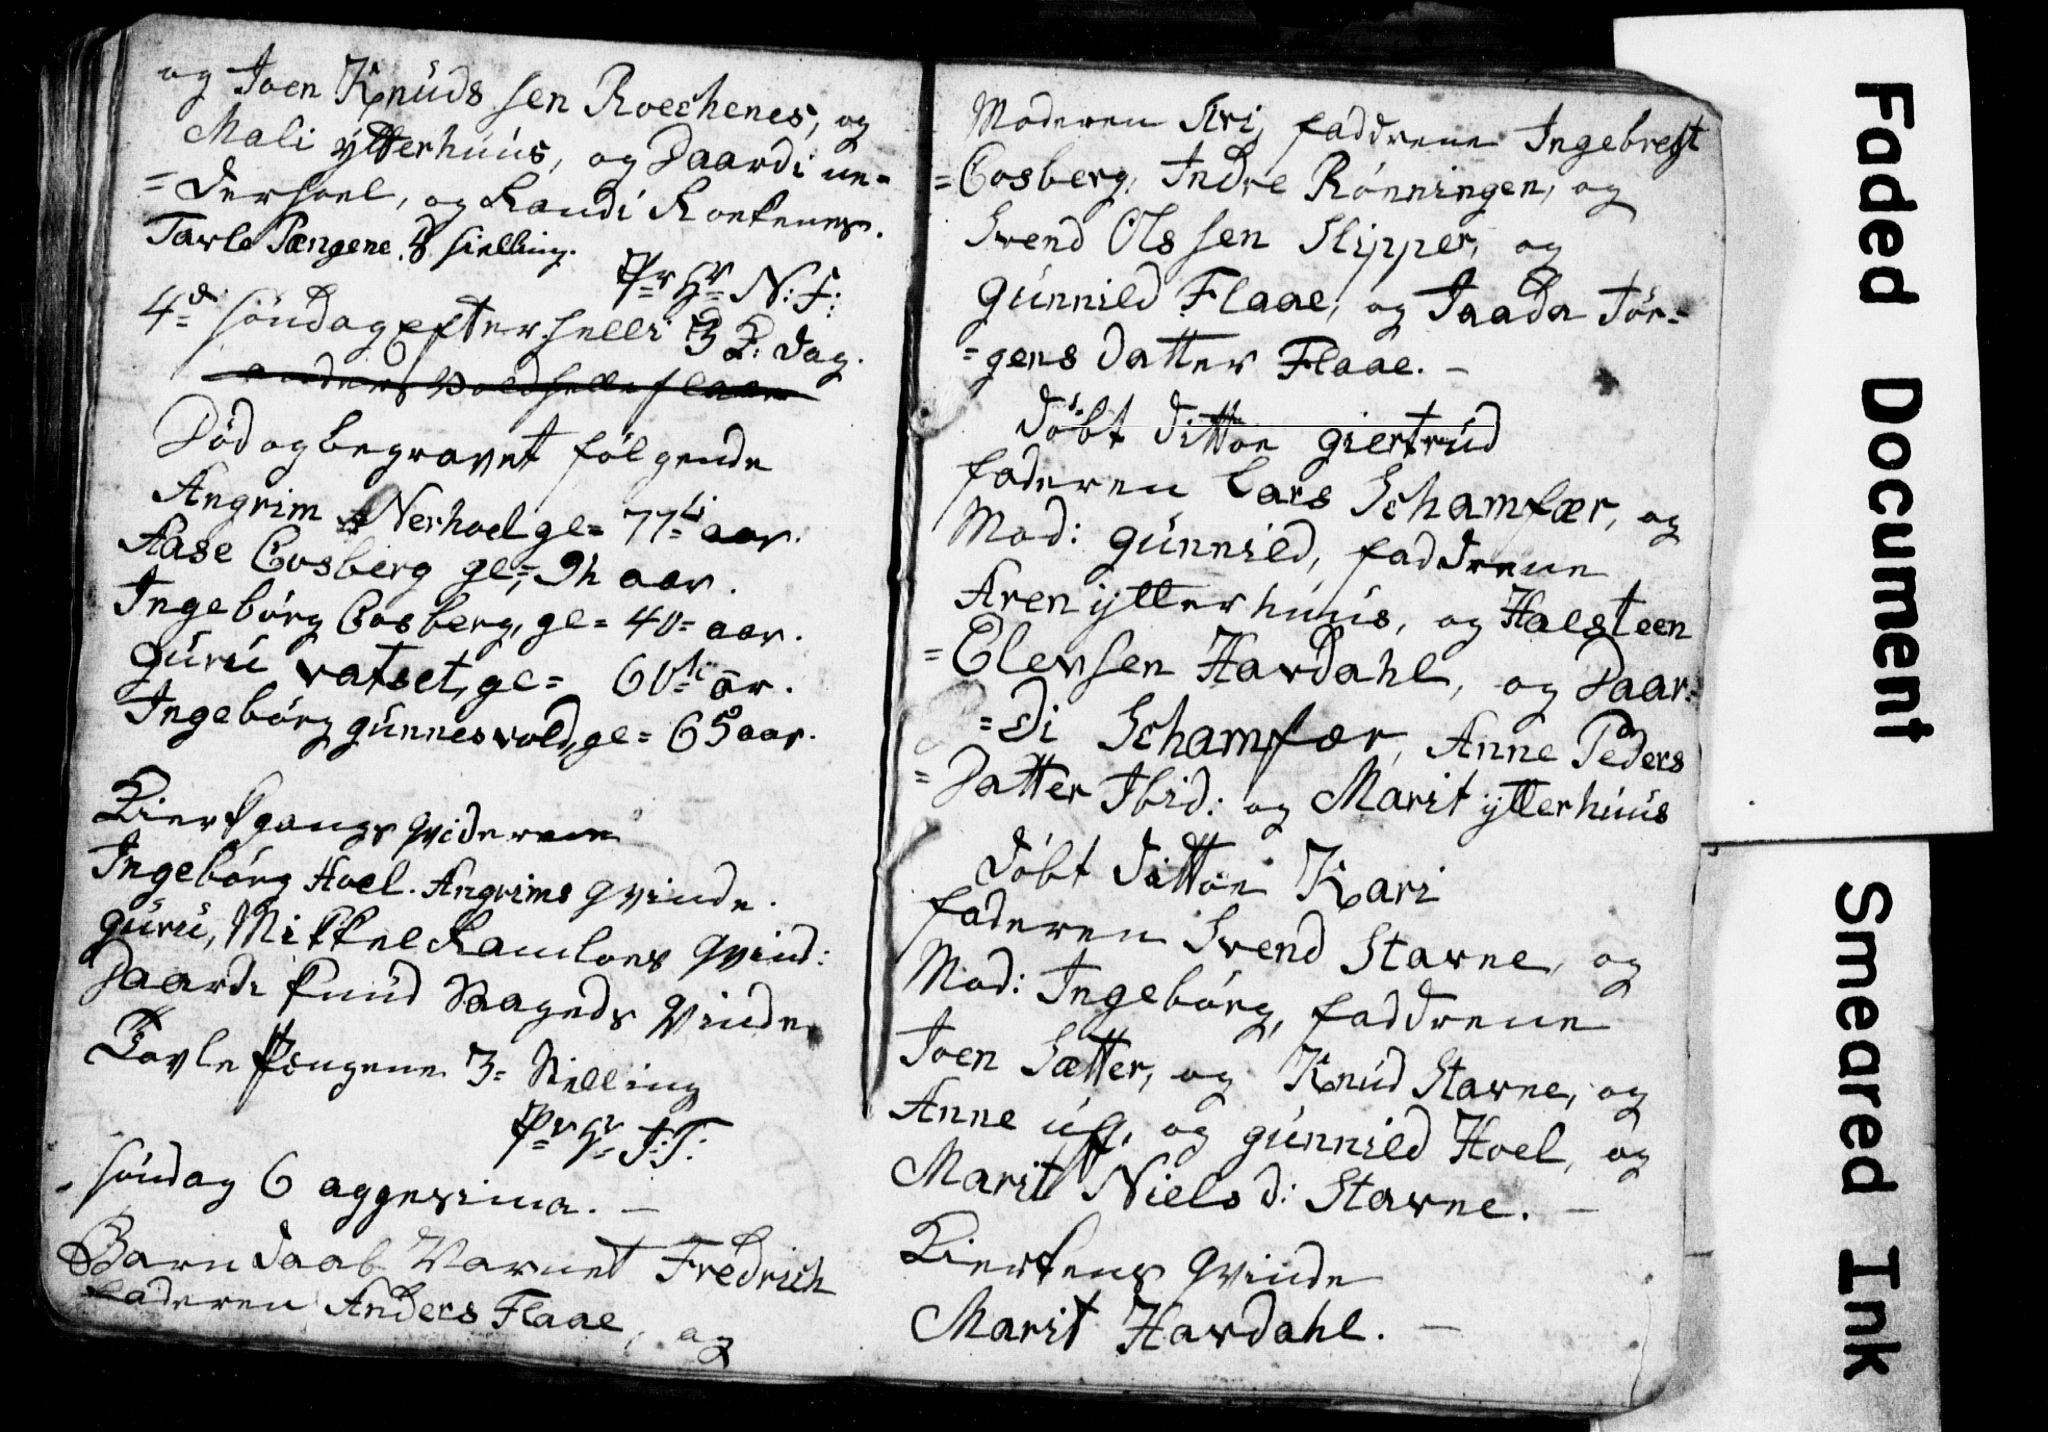 og Joen Knüds sen Roechenes, og
Mali ÿtterhüüs, og Daardi ne-
= dersoel, og Randi Roekenes.
Tavle Pængene 8 sielling.
Pr Hr N: F:
4de söndag efter helli 3 K: dag.
Död og begravet fölgende
Angrim Nerhoel ge= 77= aar.
Aase Cosberg ge=, 9h aar.
Ingebörg Cosberg, ge= 40= aar.
Gürü ratset, ge= 60= ar.
Ingebörg günnesvold, ge= 65 aar.
Kierkgangs qviderene
Ingebörg Hoel. Angrims qvinde.
gürü, Mikkel Ramloes qvind:
Daardi knüd Vaageds qvinde
Tavle Pengene 3= skilling
Pr Hr J: F:
Söndag 6 aggesima. —
Barn daab Navnet Fredrich
faderen Anders Flaae, og
Moderen Kri, faddrene Ingebregt
= Cosberg, Indre Rönningen, og
Svend Ols sen Slipper, og
Günnild Flaae, og Jaada Jör-
= gens datter Flaae. —
döbt dittoe giertrüd
faderen Lars Schamfær, og
Mod: günnild, faddrene
Aren ÿtterhüüs, og Halsteen
= Elevsen Havdahl, og Daar-
= di Schamfær, Anne Peders
= Datter Ibid: og Marit ÿtterhüüs
döbt dittoe Kari
faderen Svend Stavne, og
Mod: Ingebörg, faddrene
Joen Sætter, og Knüd Stavne, og
Anne üff, og günnild Hoel, og
Marit Niels d: Stavne. —
Kierkens qvinde
Marit Havdahl. —
Faded Document
Smeared Ink